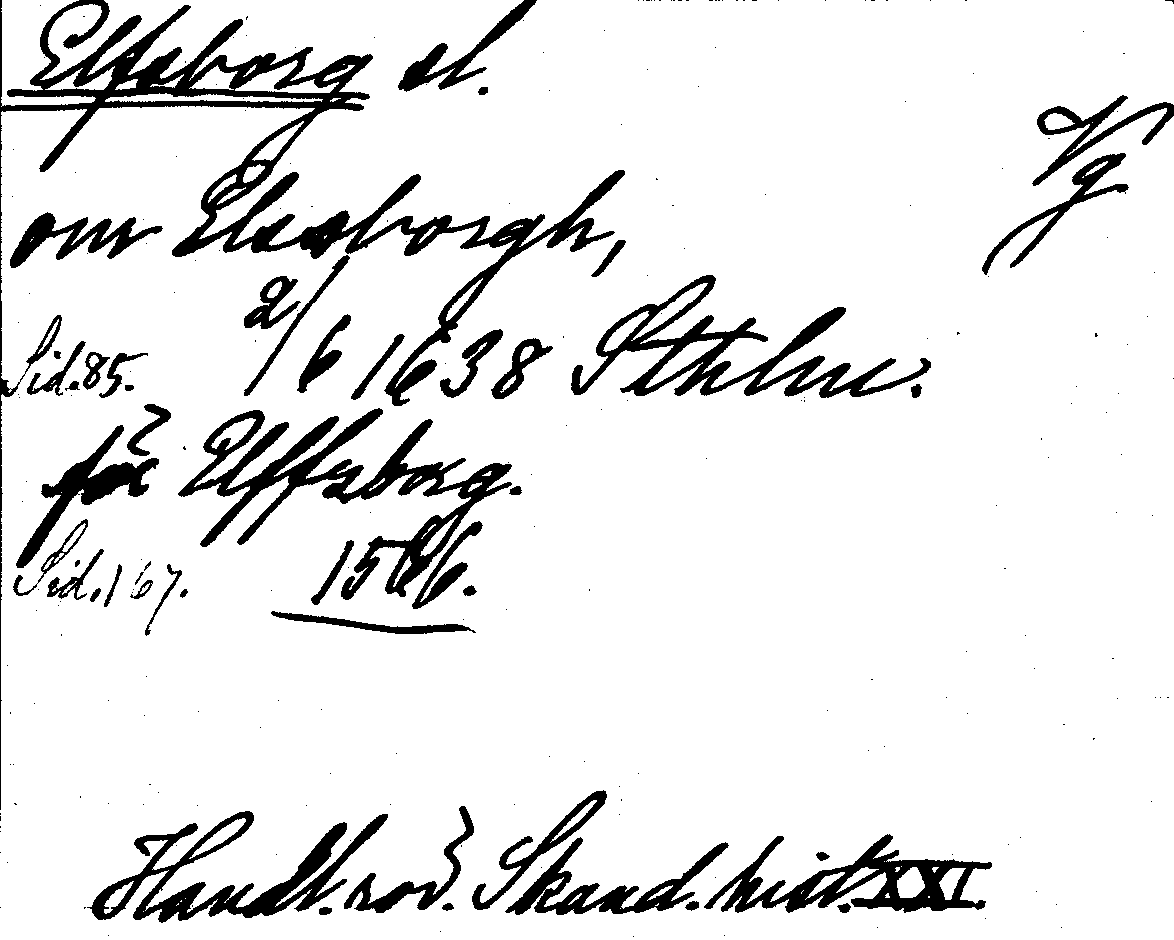 Elfsborg sl.
Vg
om Elssborgh,
Sid. 85. 2/6 1638 Sthlm.
för Elffzborg.
Sid. 167. 1566.
Handl. rör. Skand. hist. XXI.